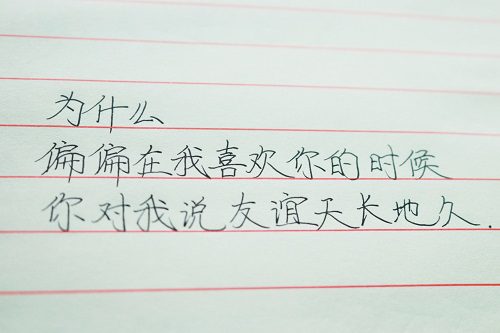 为什么
偏偏在我喜欢你的时候
你对我说友谊天长地久.